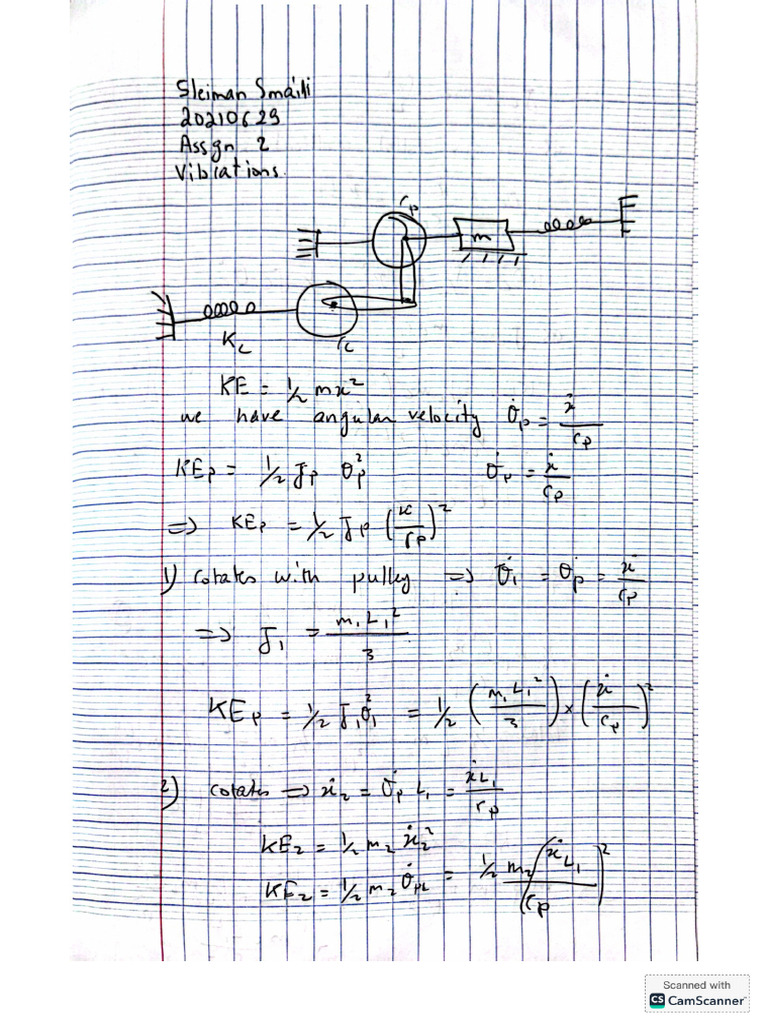 Sleiman Smaili
20210629
Assgn 2
Vibrations.
rp
m
Kc
rc
KE = 1/2 mx²
we have angular velocity θ̇p = ẋ/rp
KEp = 1/2 Jp θp² θ̇p = ẋ/rp
=> KEp = 1/2 Jp (ẋ/rp)²
1) rotates with pulley => θ̇1 = θ̇p = ẋ/rp
=> J1 = m1L1²/3
KEp = 1/2 J1θ̇1² = 1/2 (m1L1²/3) × (ẋ/rp)²
2) rotates => ẋ2 = θ̇p L1 = ẋL1/rp
KE2 = 1/2 m2 ẋ2²
KE2 = 1/2 m2 θ̇pL = 1/2 m2 (ẋL1/rp)²
Scanned with
CS CamScanner